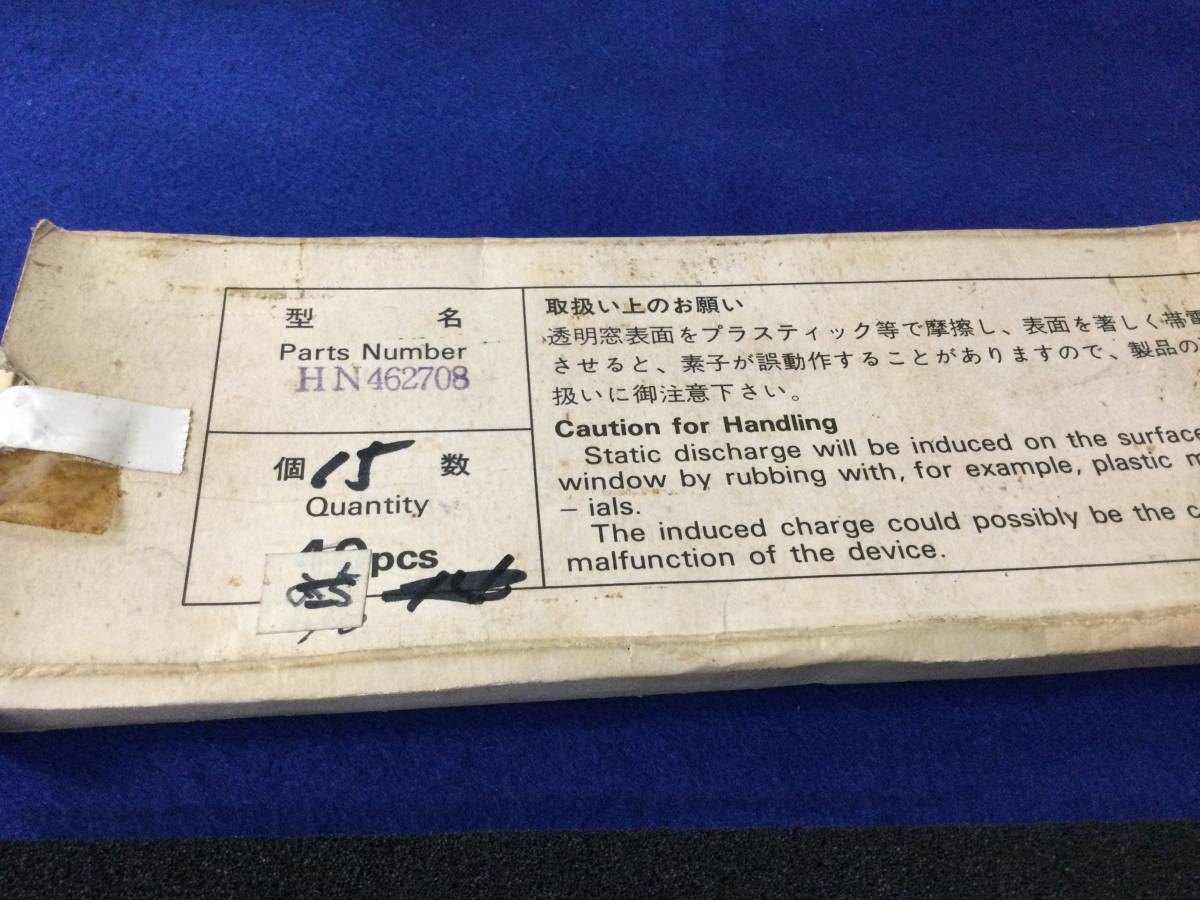 型 名
Parts Number
HN462708
個 15 数
Quantity
pcs
取扱い上のお願い
透明窓表面をプラスティック等で摩擦し、表面を著しく帯電
させると、素子が誤動作することがありますので、製品の
扱いに御注意下さい。
Caution for Handling
Static discharge will be induced on the surface
window by rubbing with, for example, plastic m
– ials.
The induced charge could possibly be the c
malfunction of the device.